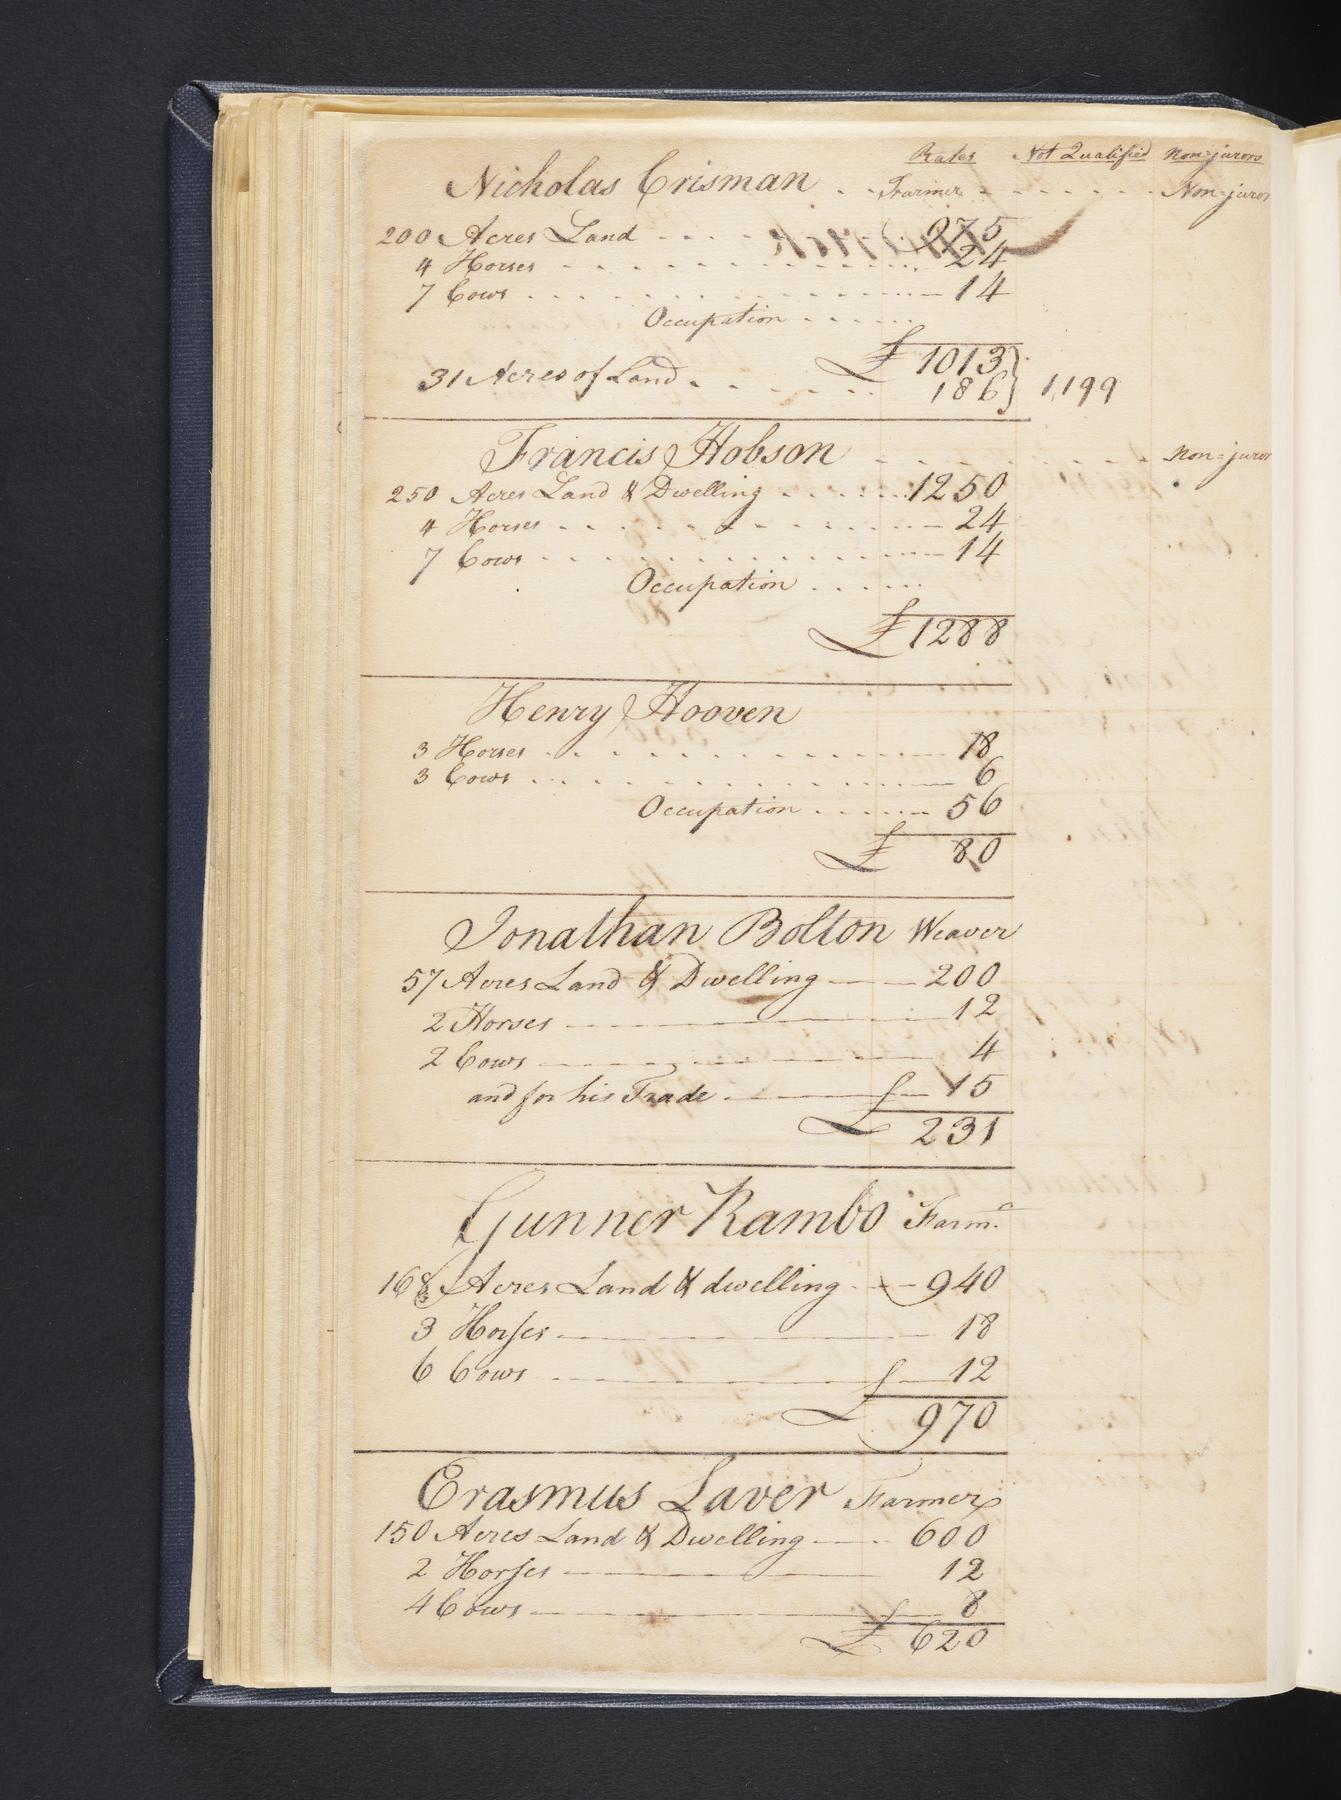 Rates Not Qualified Non-jurors
Nicholas Crisman . . Farmer - - - - - - Non-juror
200 Acres Land - - - - 975
4 Horses - - - - - - 24
7 Cows - - - - - - 14
Occupation - - - -
£ 1013
31 Acres of Land - - - - 186 } 1,199
Francis Hobson - - - - - - Non-juror
250 Acres Land & Dwelling - - - - 1250
4 Horses - - - - - - 24
7 Cows - - - - - - 14
Occupation - - - -
£ 1288
Henry Hooven
3 Horses - - - - - - 18
3 Cows - - - - - - 6
Occupation - - - - 56
£ 80
Jonathan Bolton Weaver
57 Acres Land & Dwelling - - 200
2 Horses - - - - 12
2 Cows - - - - 4
and for his Trade - - - 15
£ 231
Gunner Rambo Farmr.
168 Acres Land & dwelling - - 940
3 Horses - - - - 18
6 Cows - - - - 12
£ 970
Erasmus Laver Farmer
150 Acres Land & Dwelling - - 600
2 Horses - - - - 12
4 Cows - - - - 8
£ 620